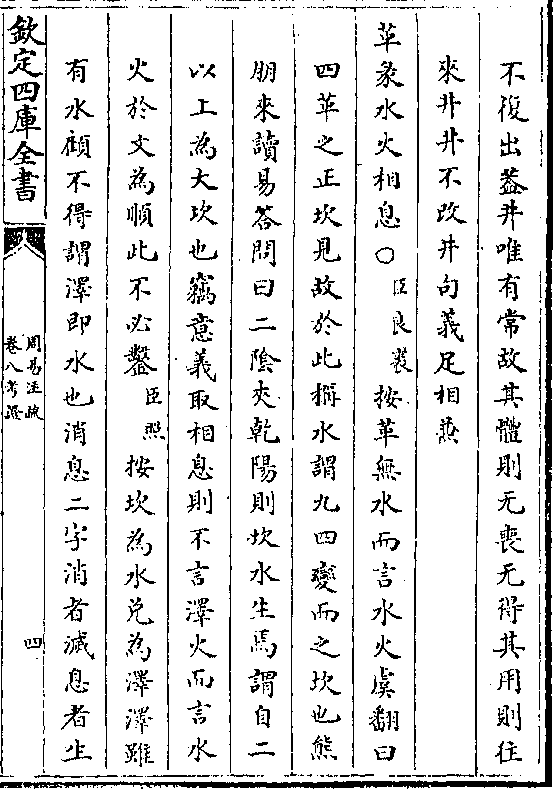 不復出蓋井唯有常故其體則无喪无得其用則往
來井井不改井句義足相兼
革彖水火相息○臣良裘按革無水而言水火虞翻曰
四革之正坎見故於此稱水謂九四變而之坎也熊
朋來讀易答問曰二陰夾乾陽則坎水生焉謂自二
以上為大坎也竊意義取相息則不言澤火而言水
火於文為順此不必鑿臣照按坎為水兌為澤澤雖
有水顧不得謂澤即水也消息二字消者滅息者生
欽定四庫全書
周易注疏
卷八考證
四